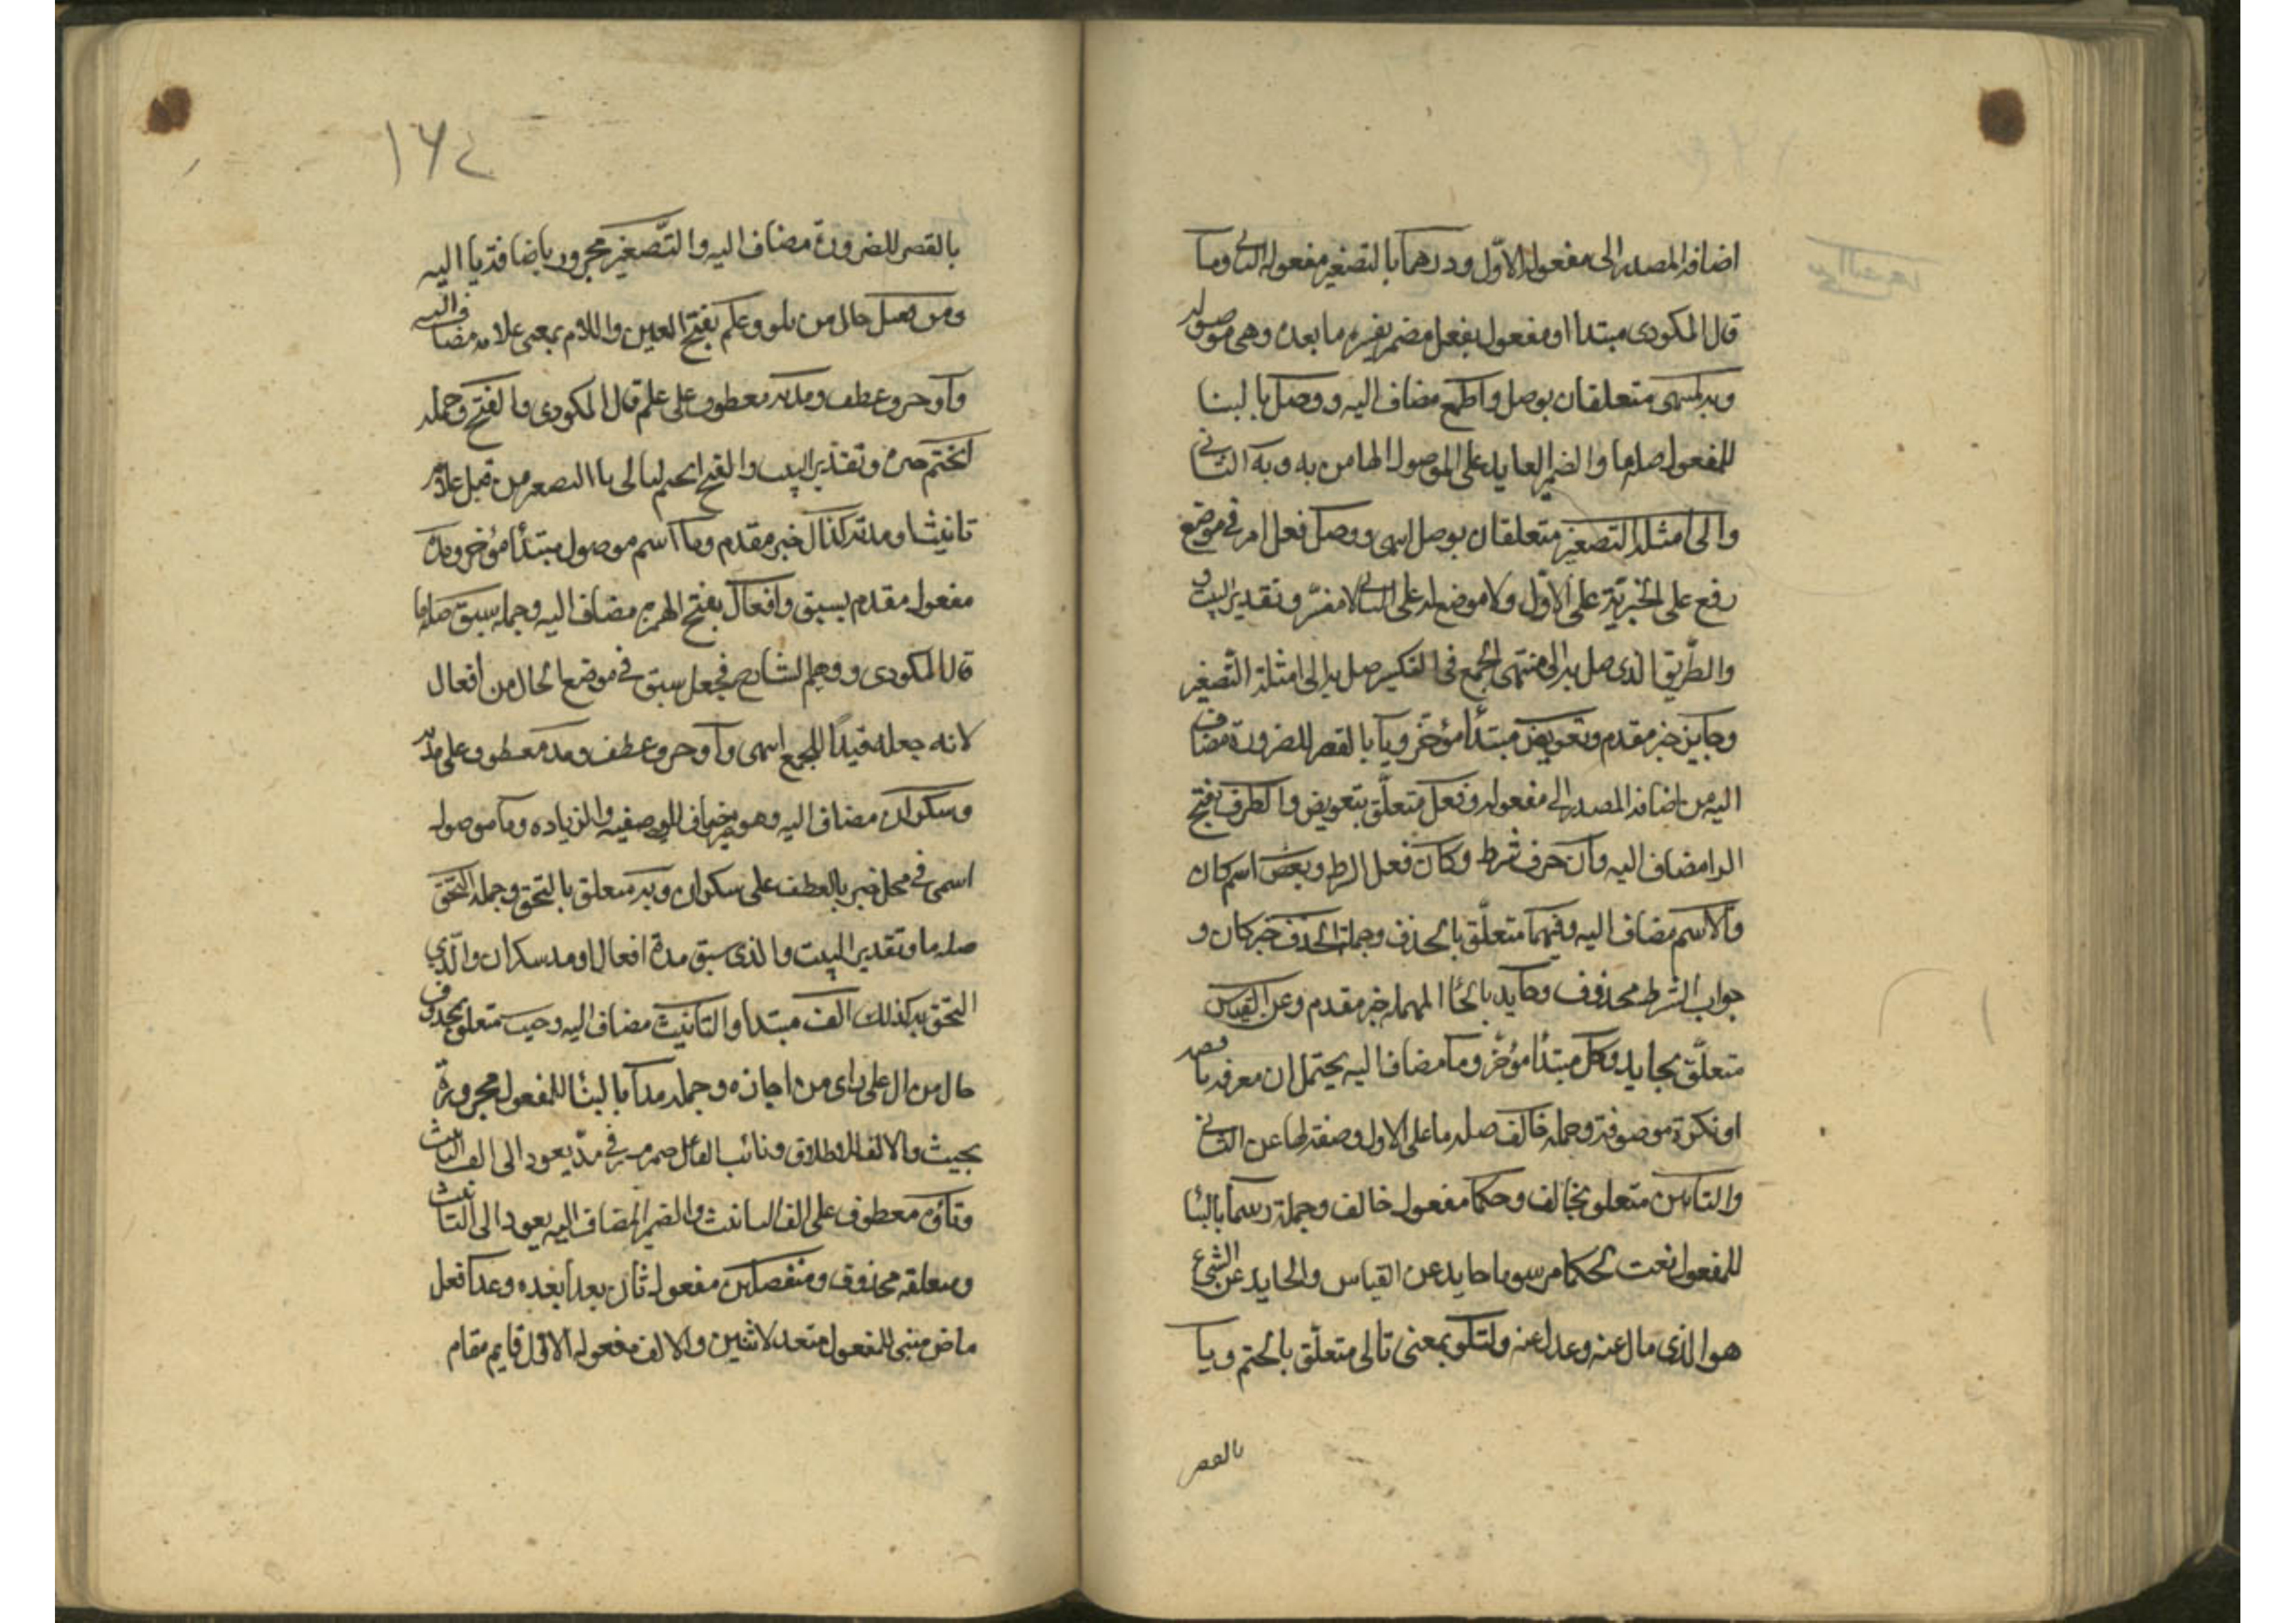 اضافة المصدر الى مفعوله الاوّل ودرهما بالتصغير مفعوله الثاني وما
قال المكودى مبتدا او مفعول بفعل مضمر يفسره ما بعده وهى موصولة
وبه لمنتهى متعلقان بوصل والجمع مضاف اليه ووصل بالبنا
للمفعول صلة ما والضمير العايد على الموصول الها من به وبه الثاني
والى امثلة التصغير متعلقان بوصل ايهى ووصل فعل امر فى موضع
رفع على الخبريّة على الاوّل ولا موضع له على الثاني لا مفسّر وتقدير البيت و
والطّريق الذى وصل به الى منتهى الجمع فى التكسير صل به الى امثلة التّصغير
وجايز خبر مقدم وتعويض مبتدأ مؤخّر ويا بالقصر للضرورة مضاف
اليه من اضافة المصدر الى مفعوله وقبل متعلّق بتعويض والطرف بفتح
الرا مضاف اليه وان حرف شرط وكان فعل الشرط وبعض اسم كان
والاسم مضاف اليه وفيهما متعلّق بالحذف وجملة انحذف خبر كان و
جواب الشرط محذوف وحايد بالحاء المهملة خبر مقدم وعن القياس
متعلّق بحايد وكل مبتدأ مؤخّر وما مضاف اليه يحتمل ان معرفة ناقصه
او نكرة موصوفة وجملة خالف صلة ما على الاول وصفة لها عن الثاني
والبابين متعلق بخالف وحكما مفعول خالف وجملة رسما بالبنا
للمفعول نعت لحكما مرسوما حايد عن القياس والحايد عن الشئ
هو الذى مال عنه وعدل عنه ولتلو بمعنى تالى متعلّق بالحتم ويا
بالقصر
١٦٤
بالقصر للضرورة مضاف اليه والتّصغير مجرور باضافة يا اليه
ومن قبل حال من تلو وعلم بفتح العين واللام بمعنى علامة مضاف اليه
وأو حرف عطف ومدته معطوف على علم قال المكودى والفتح وجملة
انحتم خبره وتقدير البيت والفتح انحتم لتالى يا التصغير من قبل علامة
تانيث او مدته كذاك خبر مقدم وما اسم موصول مبتدأ مؤخر ومدة
مفعول مقدم بسبق وافعال بفتح الهمزة مضاف اليه وجملة سبق صلة ما
قال المكودى ووهم الشارح فجعل سبق فى موضع الحال من افعال
لانه جعله قيدا للجمع ايهى وأو حرف عطف ومد معطوف على مدة
وسكران مضاف اليه وهو للوصفية والزياده وما موصول
اسمى فى محل خبر بالعطف على سكران وبه متعلق بالتحق وجملة التحق
صلة ما وتقدير البيت والذى سبق مدة افعال او مد سكران والّذي
التحق به كذلك الف مبتدا والتانيث مضاف اليه وحيث متعلق بمحذوف
حال من ال على راى من اجازه وجملة مدا بالبنا للمفعول مجرورة
بحيث والالف للاطلاق ونائب الفاعل ضمير فى مدّ يعود الى الف التانيث
وتاؤه معطوف على الف التانيث والضمير المضاف اليه يعود الى التانيث
ومتعلقه محذوف ومنفصلين مفعول ثان بعدا بعده وعدا فعل
ماض مبنى للمفعول متعد لاثنين والالف مفعوله الاول قايم مقام